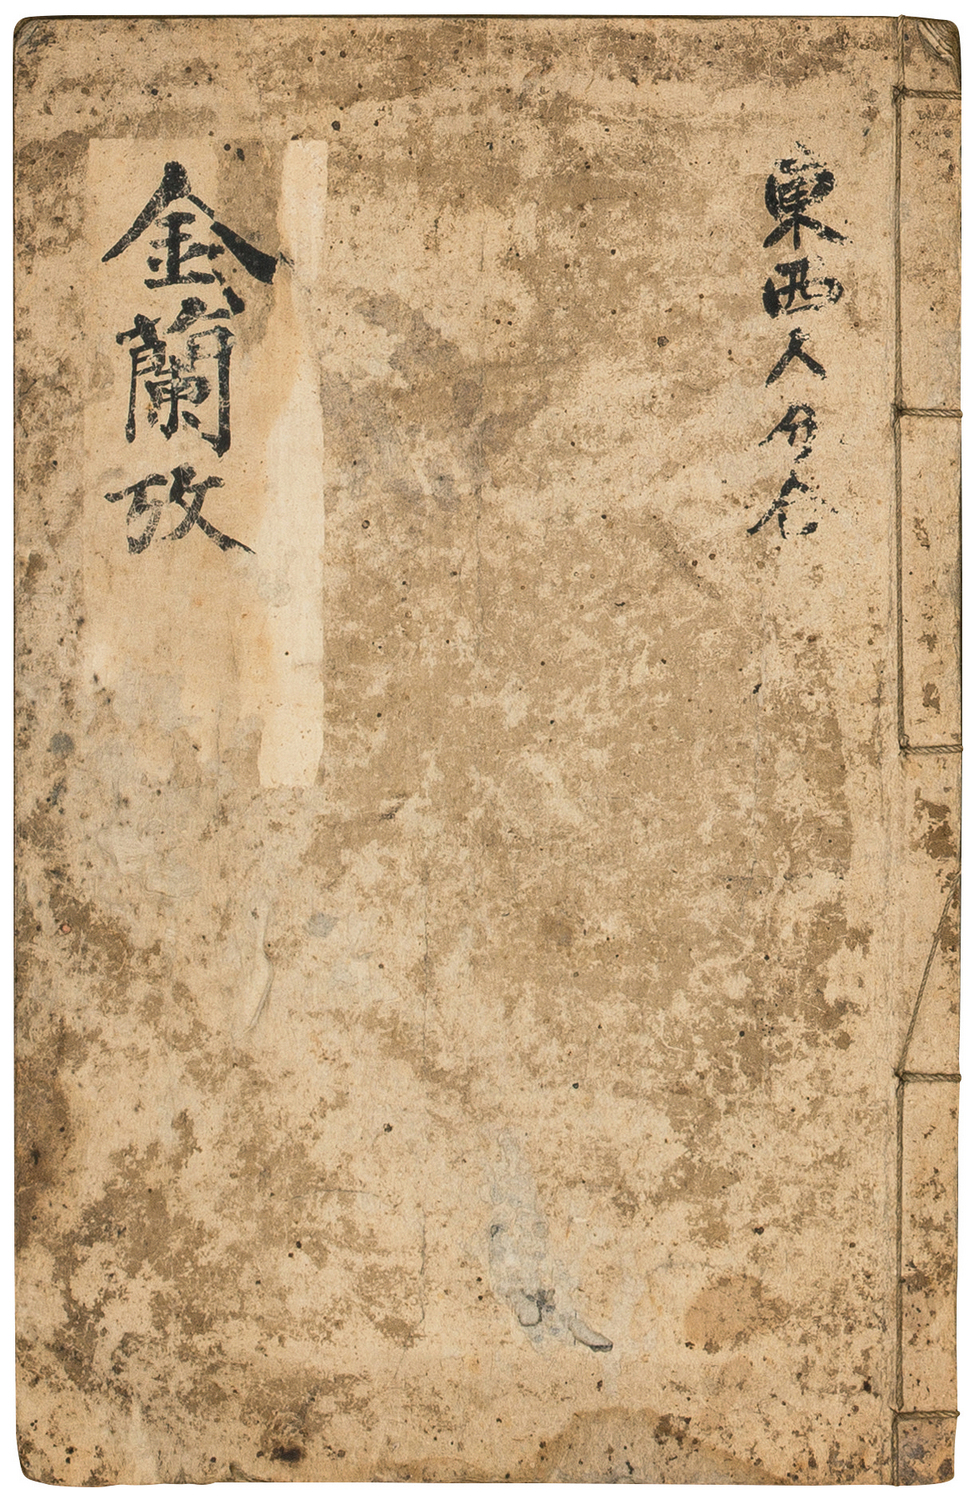 東西人分合
金蘭攷